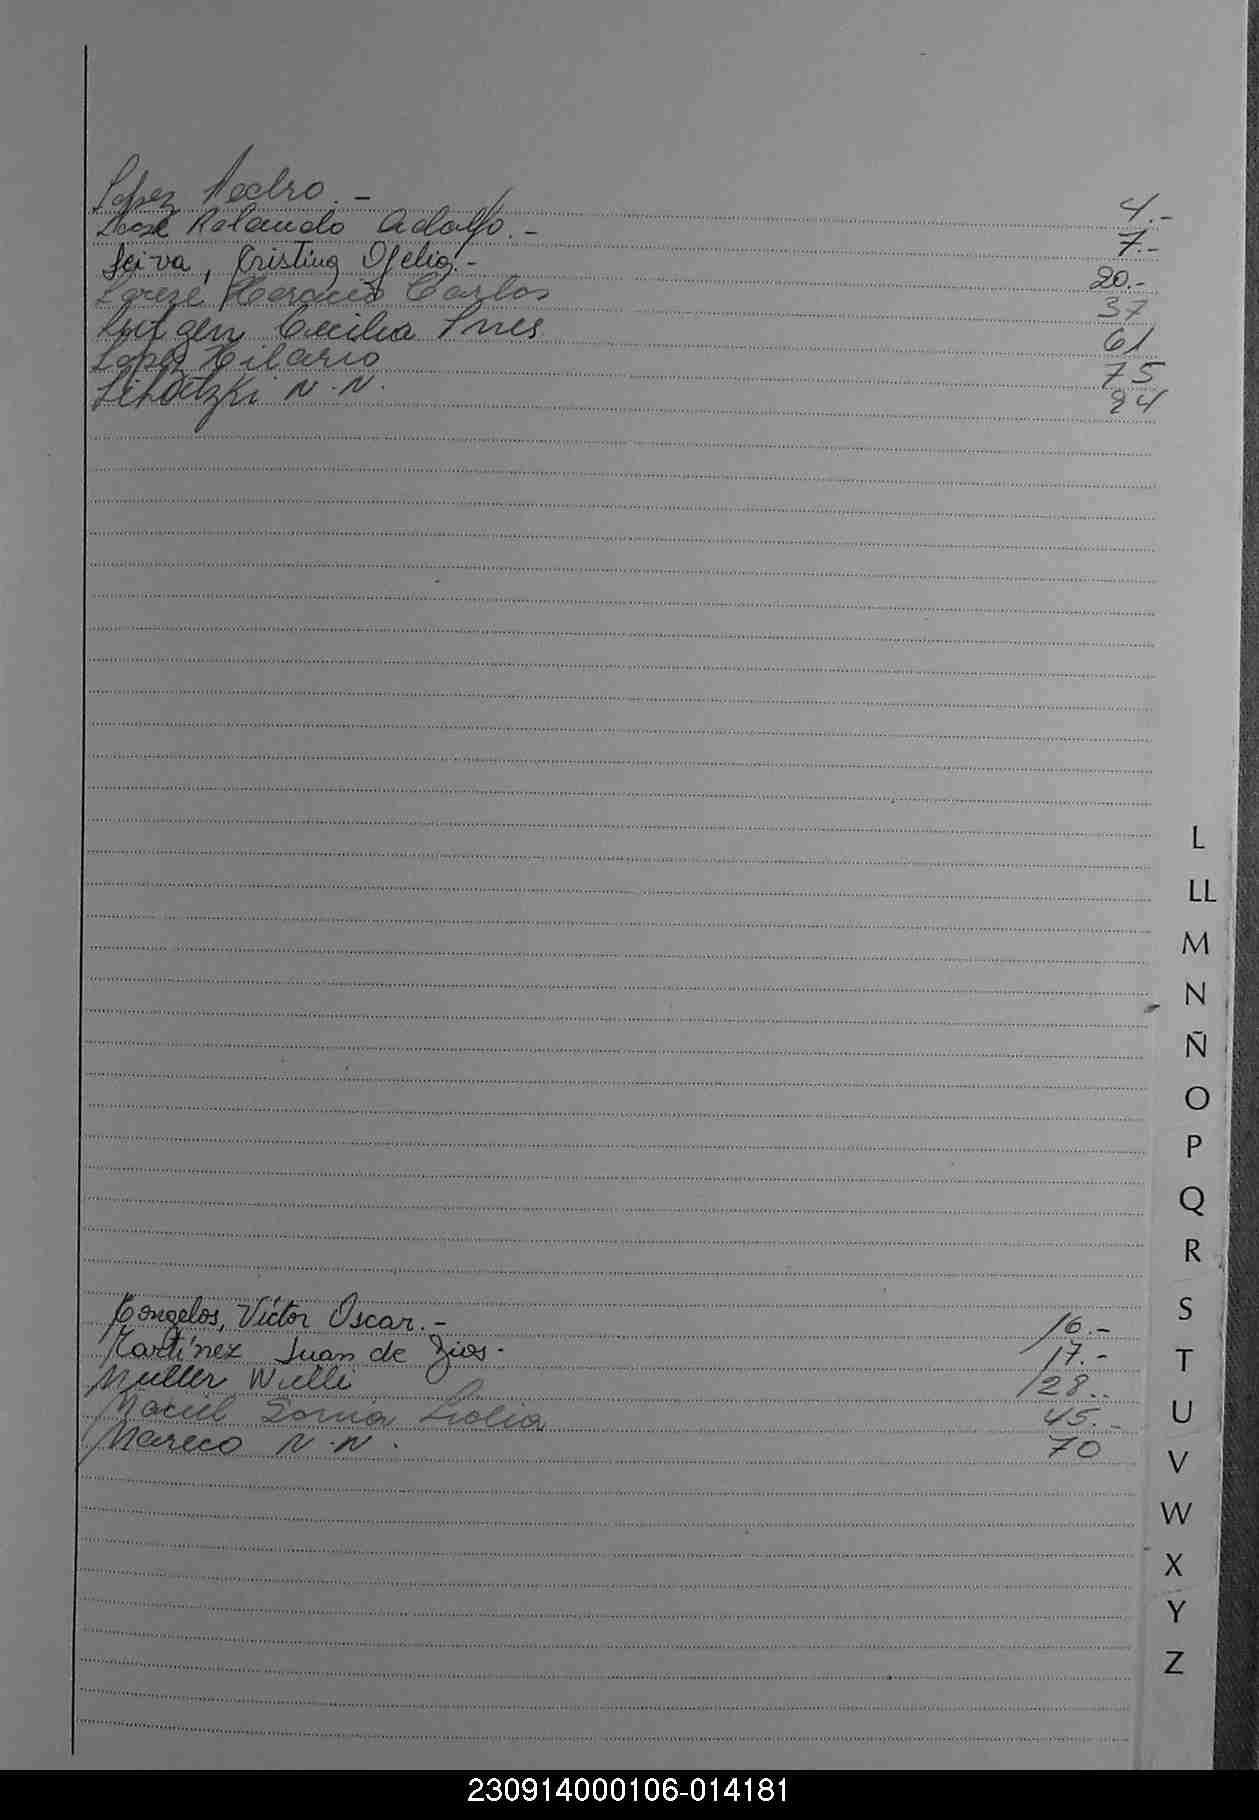 Lopez Pedro. -
Rolando Adolfo. -
Leiva, Cristina Ofelia. -
Horacio Carlos
Cecilia Ines
Lopez Hilario
N.N.
4.-
7.-
20.-
37
61
75
84
L
LL
M
N
Ñ
O
P
Q
R
S
T
U
V
W
X
Y
Z
Mongelos, Víctor Oscar. -
Martínez Juan de Dios.
Muller Willi
Maciel Sonia Lidia
Mareco N.N.
16.-
17.-
28..
45.-
70
230914000106-014181